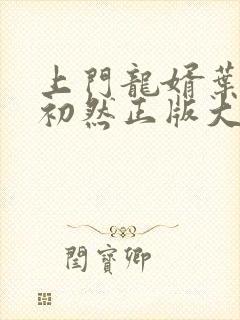 上門龍婿葉
初然正版大
閨寶卿